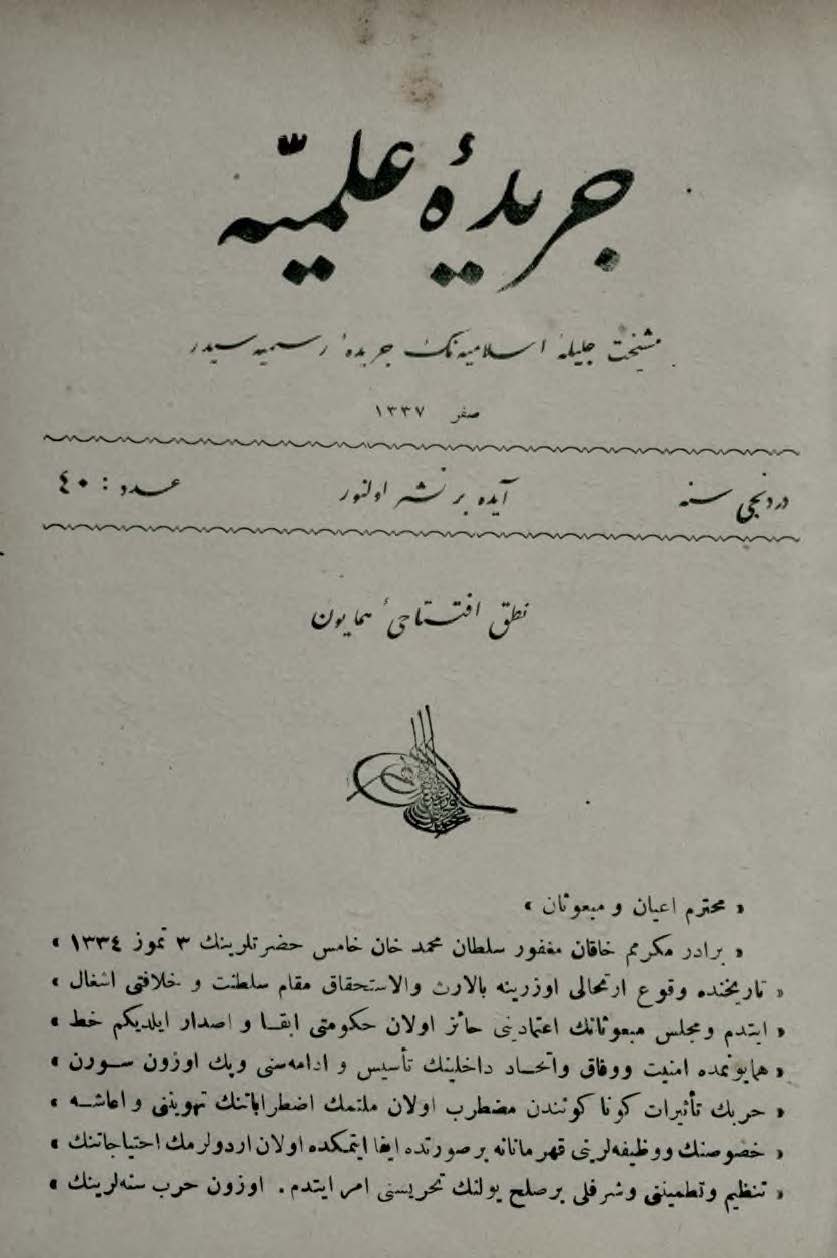 جريدۀ علميّه
مشيخت جليلۀ اسلاميه‌نك جريدۀ رسميه سيدر
صفر ١٣٣٧
دردنجی سنه
آيده بر نشر اولنور
عدد : ٤٠
نطق افتتاحیٔ همايون
« محترم اعيان و مبعوثان »
« برادر مكرمم خاقان مغفور سلطان محمد خان خامس حضرتلرينك ٣ تموز ١٣٣٤ »
« تاريخنده وقوع ارتحالی اوزرينه بالارث والاستحقاق مقام سلطنت و خلافتی اشغال »
« ايتدم و مجلس مبعوثانك اعتمادينی حائز اولان حكومتی ابقا و اصدار ايلديكم خط »
« همايونمده امنيت ووفاق واتحاد داخلينك تأسيس و ادامه‌سنی وپك اوزون سورن »
« حربك تأثيرات كوناكونندن مضطرب اولان ملتمك اضطراباتنك تهوينی و اعاشه »
« خصوصنك ووظيفه‌لرينی قهرمانانه برصورتده ايفا ايتمكده اولان اردولرمك احتياجاتنك »
« تنظيم وتطمينی وشرفلی برصلح يولنك تحريسنی امر ايتدم . اوزون حرب سنه‌لرينك »